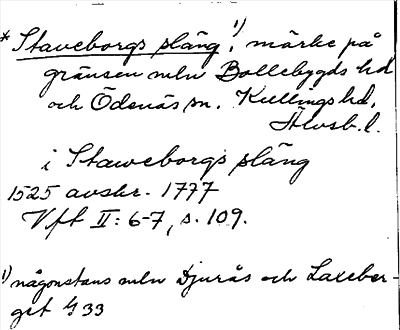 * Staveborgs släng,¹⁾ märke på
gränsen mln Bollebygds hd
och Ödenäs sn. Kullings hd,
Älvsb. l.
i Staweborgs släng
1525 avskr. 1777
Vft II: 6-7, s. 109.
1) någonstans mln Djurås och Laxeber-
get G 33